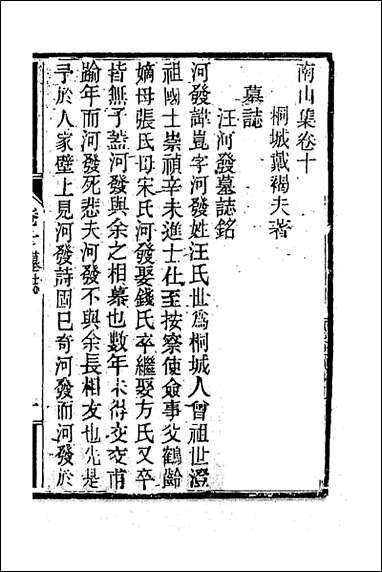 南山集卷十
桐城戴褐夫著
墓誌
汪河發墓誌銘
河發諱崑字河發姓汪氏世爲桐城人曾祖世澄
祖國士崇禎辛未進士仕至按察使僉事父鶴齡
嫡母張氏母宋氏河發娶錢氏卒繼娶方氏又卒
皆無子蓋河發與余之相慕也數年未得交交甫
踰年而河發死悲夫河發不與余長相友也先是
予於人家壁上見河發詩固已奇河發而河發於
卷十 墓誌